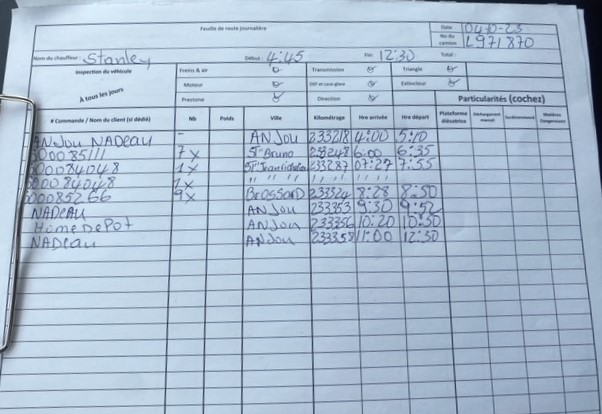 Feuille de route journalière
Date 04-10-23
No du camion L971870
Nom du chauffeur : Stanley Début : 4:45 Fin: 12:30 Total :
Inspection du véhicule Freins & air Transmission Triangle
À tous les jours Moteur DEF et Lave-glace Extincteur
Prestone Direction Particularités (cochez)
# Commande / Nom du client (si dédié) Nb Poids Ville Kilométrage Hre arrivée Hre départ Plateforme élévatrice Déchargement manuel Surdimensions Matières Dangereuses
ANJOU NADEAU - ANJOU 233218 4:00 5:10
600085111 7x St-Bruno 233248 6:00 6:35
600084048 1x 233287 07:27 7:55
600084048 1x " " " " " " "
600085266 9x BROSSARD 233324 8:28 8:50
NADEAU ANJOU 233353 9:30 9:52
Home DePot ANJOU 233356 10:20 10:30
NADEAU ANJOU 233358 11:00 12:30